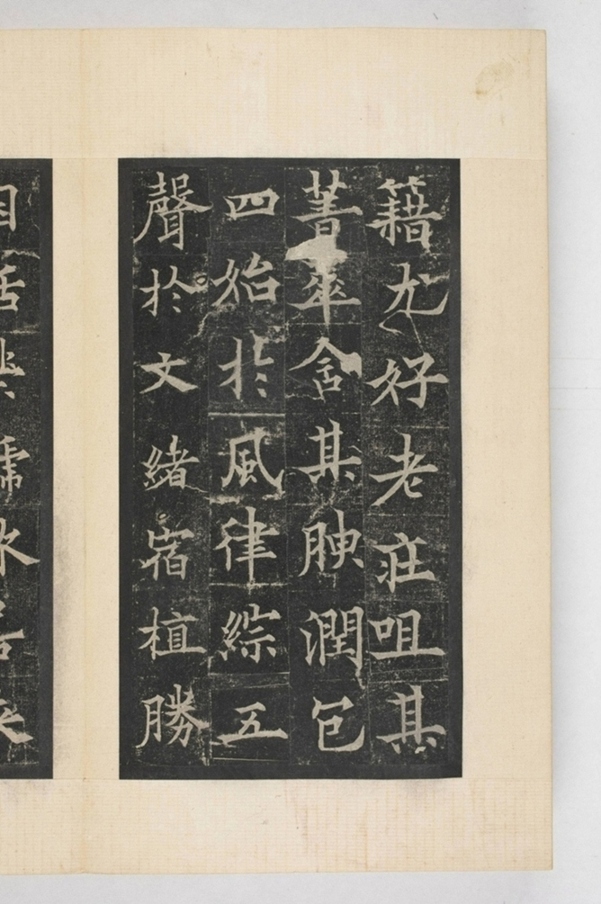 籍尤好老莊咀其
菁華含其腴潤包
四始於風律綜五
聲於文緒宿植勝